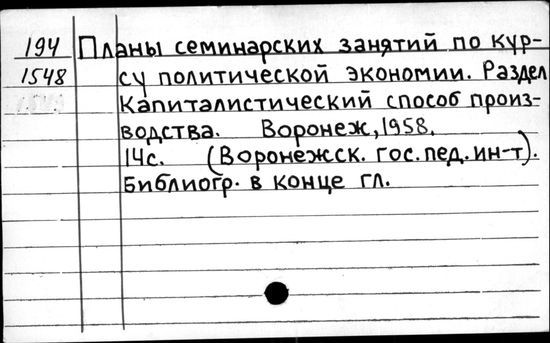 194 Планы семинарских занятий по кур-
1548 су политической экономии. Раздел
Капиталистический способ произ-
водства. Воронеж, 1958.
14с. (Воронежск. гос. пед. ин-т).
Библиогр. в конце гл.